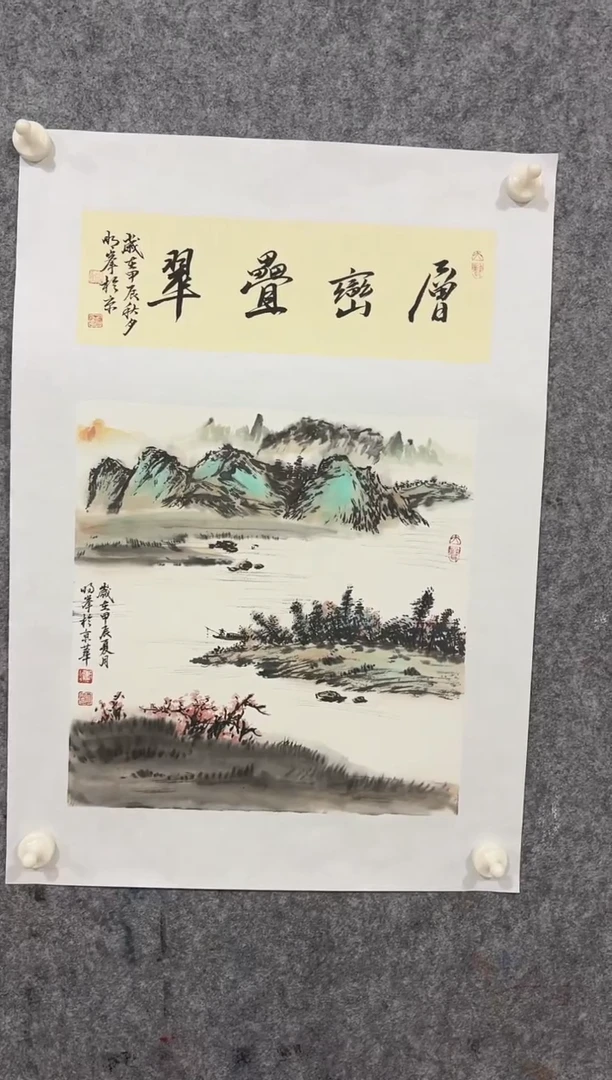 層巒疊翠
歲在甲辰秋夕
明峯於京
歲在甲辰夏月
明峯於京華